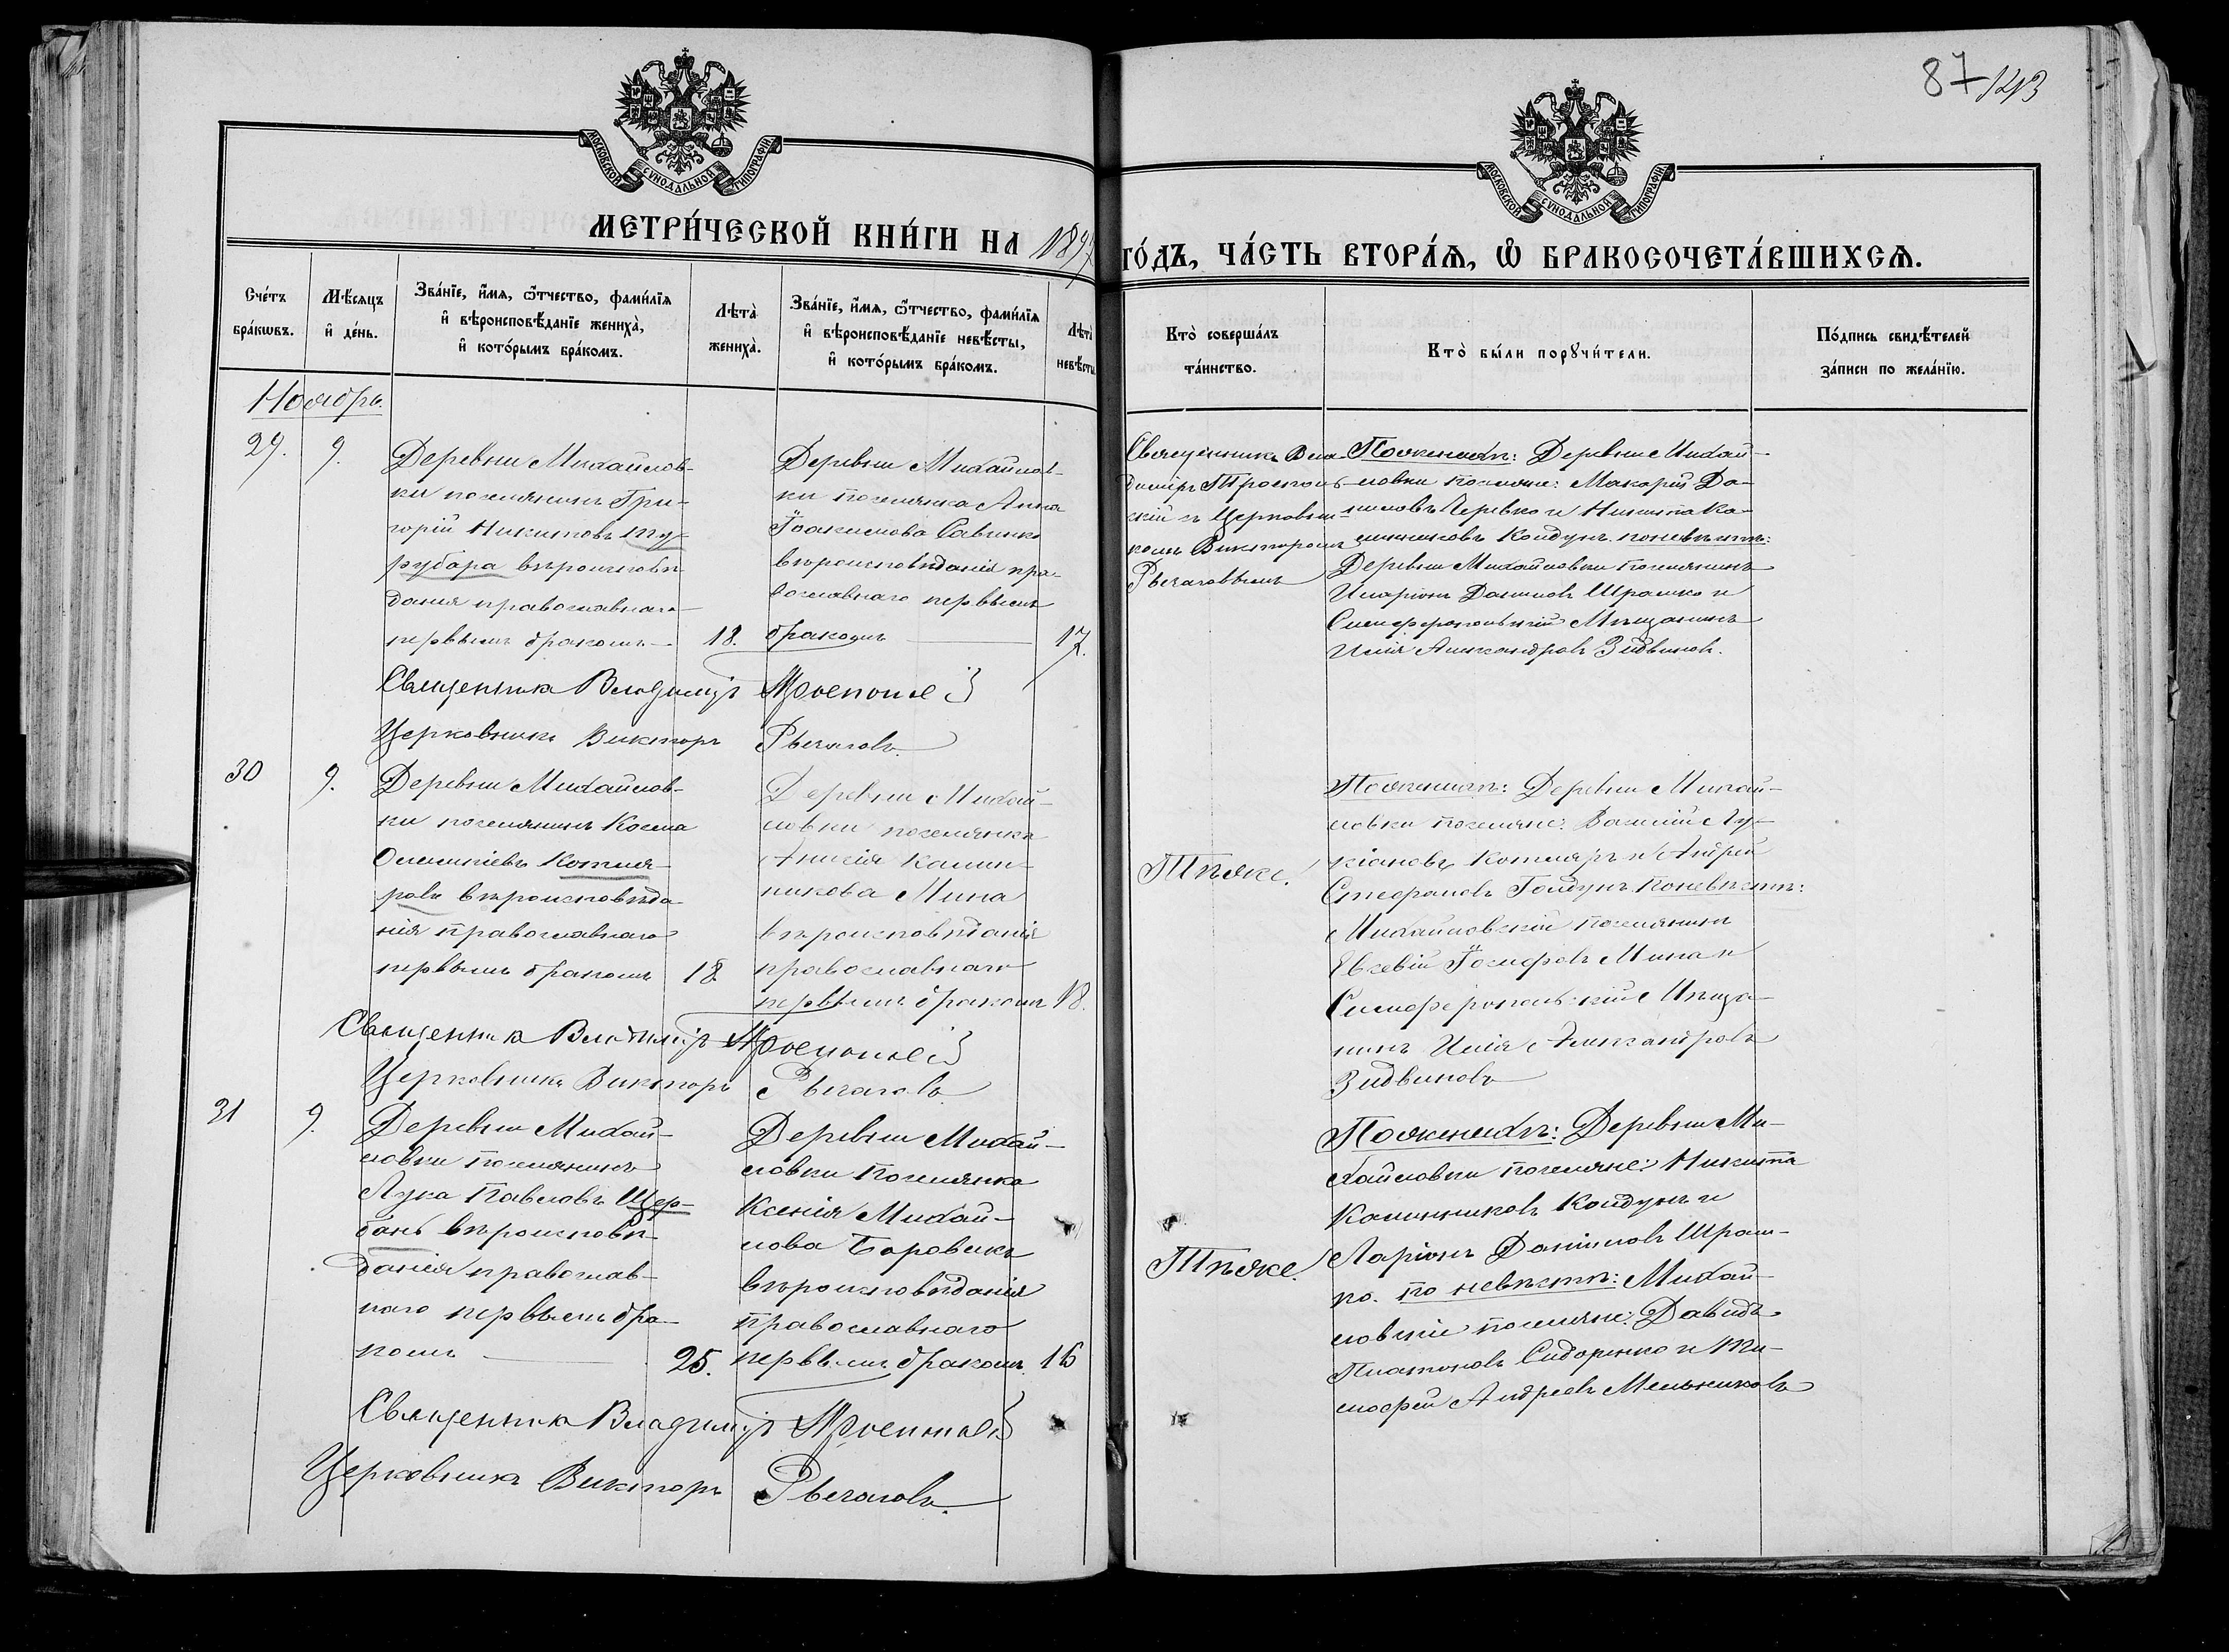 87 143
МОСКОВСКОЙ СѴНОДАЛЬНОЙ ТИПОГРАФІИ
МОСКОВСКОЙ СѴНОДАЛЬНОЙ ТИПОГРАФІИ
МЕТРИ́ЧЕСКОЙ КНИ́ГИ НА 1897
ГО́ДЪ, ЧА́СТЬ ВТОРА́Ѧ, Ѡ҆ БРАКОСОЧЕТА́ВШИХСѦ.
Сче́тъ
бра́кѡвъ.
Мѣ́сѧцъ
и҆ де́нь.
Зва́нїе, и҆́мѧ, ѻ҆́тчество, фами́лїѧ
и҆ вѣроисповѣ́данїе жениха̀,
и҆ кото́рымъ бра́комъ.
Лѣта̀
жениха̀.
Зва́нїе, и҆́мѧ, ѻ҆́тчество, фами́лїѧ
и҆ вѣроисповѣ́данїе невѣ́сты,
и҆ кото́рымъ бра́комъ.
Лѣта̀
невѣ́сты
Кто̀ соверша́лъ
та́инство.
Кто̀ бы́ли порꙋчи́тели.
По́дпись свидѣ́телей
за́писи по жела́нїю.
Ноябрь.
29. 9.
Деревни Михайлов-
ки поселянинъ Гри-
горій Никитовъ Ту-
рубара вѣроисповѣ-
данія православнаго
первымъ бракомъ 18.
Деревни Михайлов-
ки поселянка Анна
Іоакимова Савинко
вѣроисповѣданія пра-
вославнаго первымъ
бракомъ 17.
Священникъ Вла-
диміръ Троеполь-
скій съ Церковни-
комъ Викторомъ
Рычаговымъ
По женихѣ: Деревни Михай-
ловки поселяне: Макарій Да-
ниловъ Черевко и Никита Ка-
линниковъ Койдунъ. по невѣстѣ:
Деревни Михайловки поселянинъ
Иларіонъ Даниловъ Шрамко и
Симферопольскій Мѣщанинъ
Илія Александровъ Зидвиновъ.
Священникъ Владиміръ Троепольскій
Церковникъ Викторъ Рычаговъ.
30 9.
Деревни Михайлов-
ки поселянинъ Косма
Котля-
ровъ вѣроисповѣда
нія православнаго
первымъ бракомъ 18
Деревни Михай-
ловки поселянка
Анисія Калин-
никова Мина
вѣроисповѣданія
православнаго
первымъ бракомъ 18.
Тѣже.
По женихѣ: Деревни Михай-
ловки поселяне: Василій Лу-
кіановъ Котляръ и Андрей
Стефановъ Гойдунъ. По невѣстѣ:
Михайловскій поселянинъ
Евсевій Іосифовъ Мина и
Симферопольскій Мѣща-
нинъ Илія Александровъ
Зидвиновъ
Священникъ Владиміръ Троепольскій
Церковникъ Викторъ Рычаговъ
31 9.
Деревни Михай-
ловки поселянинъ
Лука Павловъ Щер-
бань вѣроисповѣ-
данія православ-
наго первымъ бра-
комъ 25.
Деревни Михай-
ловки Поселянка
Ксенія Михай-
лова Боровикъ
вѣроисповѣданія
православнаго
первымъ бракомъ 16
Тѣже.
По женихѣ: Деревни Ми-
хайловки поселяне: Никита
Калинниковъ Койдунъ и
Ларіонъ Даниловъ Шрам-
ко. по невѣстѣ: Михай-
ловскіе поселяне: Давидъ
Платоновъ Сидоренко и Ти-
мофей Андреевъ Мельниковъ
Священникъ Владиміръ Троепольскій
Церковникъ Викторъ Рычаговъ.